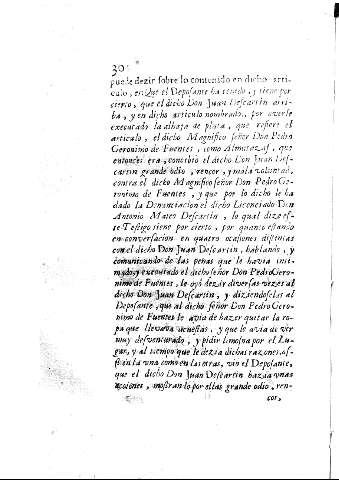 30
puede dezir sobre lo contenido en dicho arti-
culo, en Que el Deposante ha tenido, y tiene por
cierto, que el dicho Don Juan Descartin arri-
ba, y en dicho articulo nombrado, por averle
executado la alhaja de plata, que refiere el
articulo, el dicho Magnifico señor Don Pedro
Geronimo de Fuentes, como Almutazaf, que
entonces era, concibió el dicho Don Juan Des-
cartin grande odio, rencor, y mala voluntad,
contra el dicho Magnifico señor Don Pedro Ge-
ronimo de Fuentes, y que por lo dicho le ha
dado la Denunciacion el dicho Licenciado Don
Antonio Mateo Descartin, lo qual dize es-
te Testigo tiene por cierto, por quanto estando
en conversacion en quatro ocasiones distintas
con el dicho Don Juan Descartin, hablando, y
comunicando de las penas que le havia inti-
mado, y executado el dicho señor Don Pedro Gero-
nimo de Fuentes, le oyó dezir diversas vezes al
dicho Don Juan Descartin, y diziendoselas al
Deposante, que al dicho señor Don Pedro Gero-
nimo de Fuentes le avia de hazer quitar la ro-
pa que llevava acuestas, y que le avia de vir
muy desventurado, y pidir limosna por el Lu-
gar, y al tiempo que le dezia dichas razones, as-
si en la una como en las otras, vió el Deposante,
que el dicho Don Juan Descartin hazia unas
acciones, mostrando por ellas grande odio, ren-
cor,